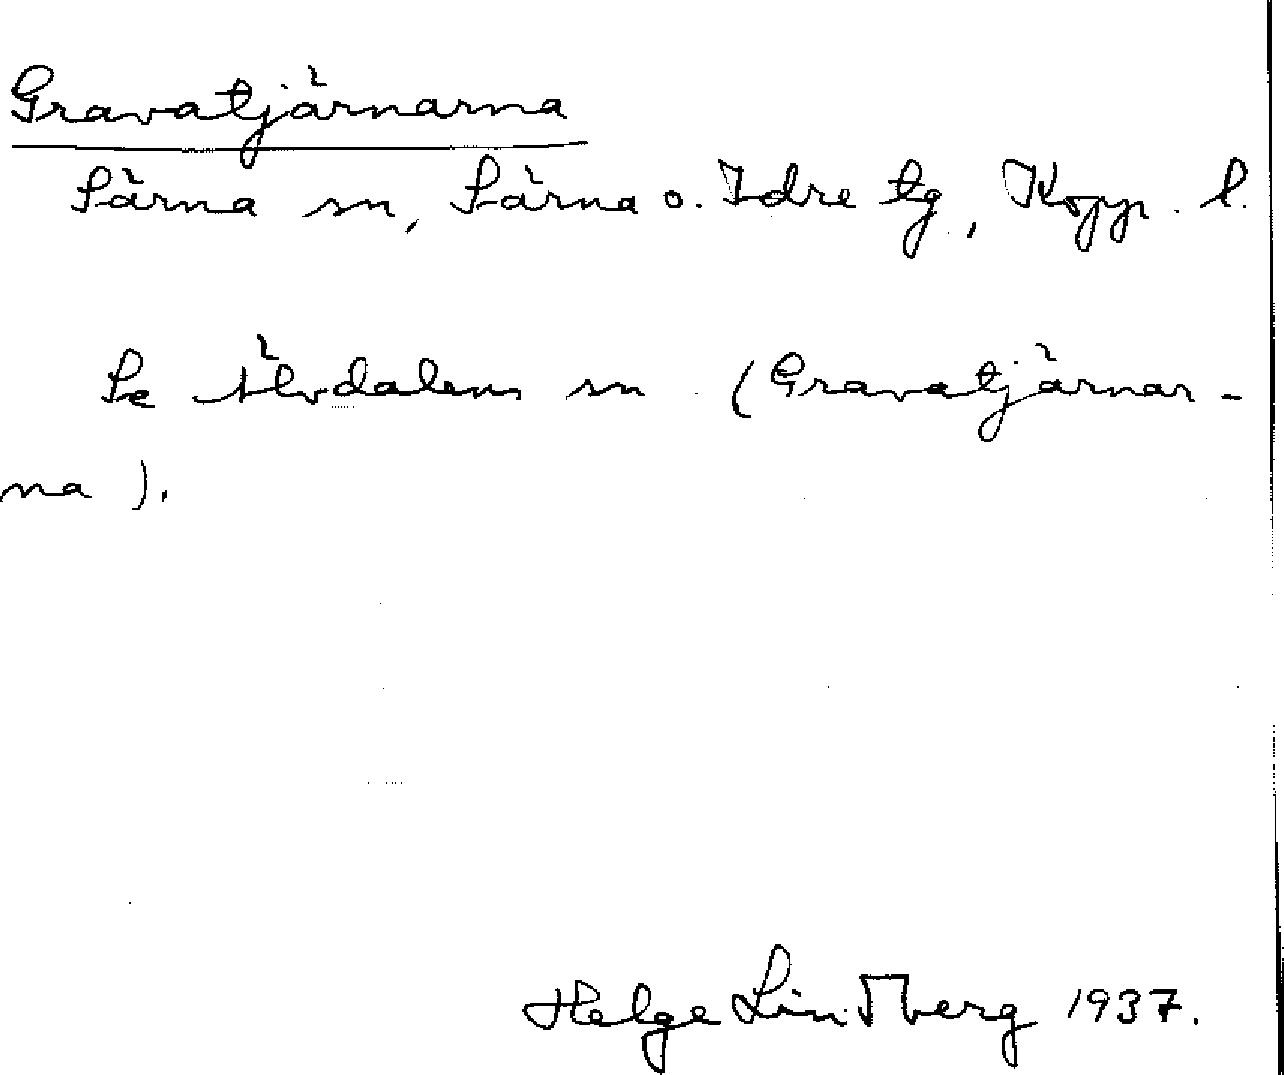 Gravatjärnarna
Särna sn, Särna o. Idre tg, Kopp. l.
Se Älvdalens sn (Gravatjärnar-
na).
Helge Lindberg 1937.